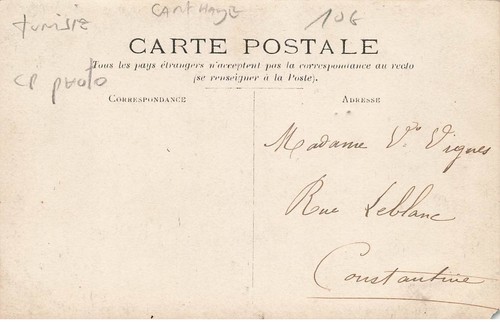 Tunisie
CARTHAGE
10€
CP PHOTO
CARTE POSTALE
Tous les pays étrangers n'acceptent pas la correspondance au recto
(se renseigner à la Poste).
CORRESPONDANCE
ADRESSE
Madame Vve Vignes
Rue Leblanc
Constantine